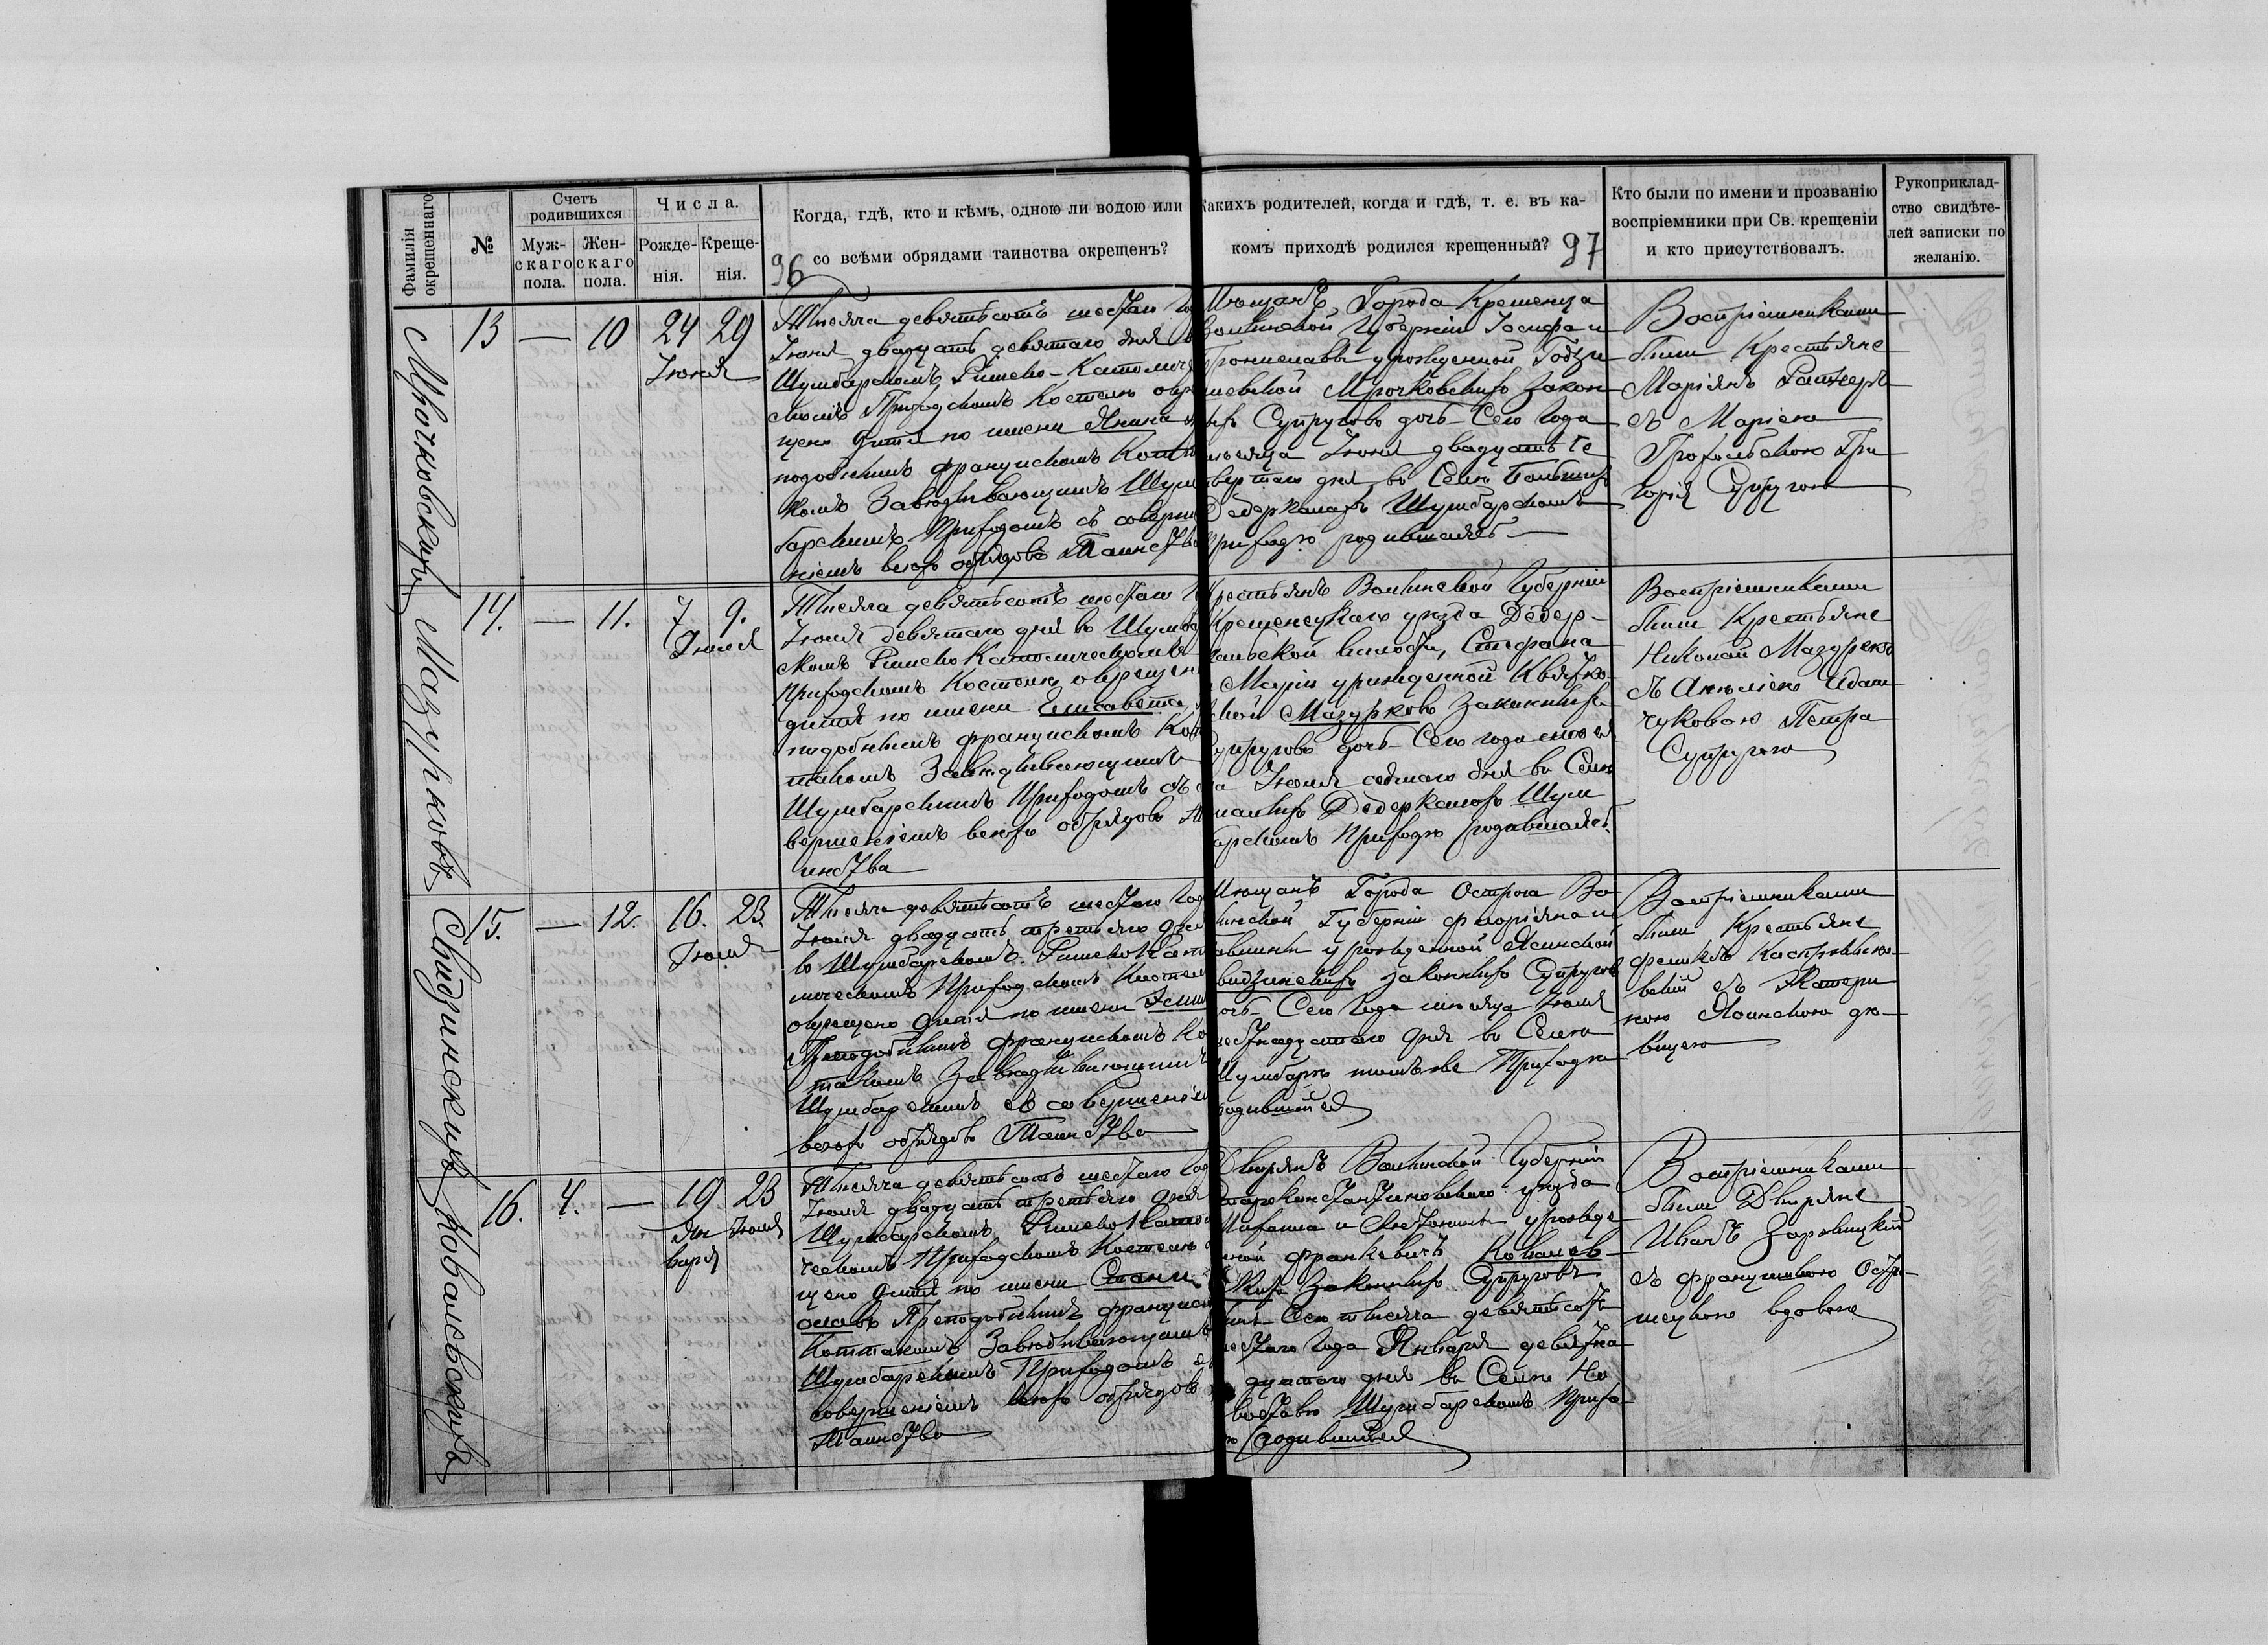 Фамилія окрещеннаго
№
Счетъ родившихся
Мужскаго пола.
Женскаго пола.
Числа.
Рожденія.
Крещенія.
Когда, гдѣ, кто и кѣмъ, одною ли водою или
со всѣми обрядами таинства окрещенъ?
96
какихъ родителей, когда и гдѣ, т. е. въ ка-
комъ приходѣ родился крещенный?
97
Кто были по имени и прозванію
воспріемники при Св. крещеніи
и кто присутствовалъ.
Рукоприклад-
ство свидѣте-
лей записки по
желанію.
Мрочковскихъ
13 — 10 24 29
Іюня
Тысяча девятьсотъ шестаго
Іюня двадцать девятаго дня
Шумбарскомъ Римско-Католиче
скомъ Приходскомъ Костелѣ окр
щено дитя по имени Янина
подобнымъ Францискомъ Кот
комъ Завѣдывающимъ Шум
барскимъ Приходомъ съ соверш
ніемъ всѣхъ обрядовъ Таинства
Мѣщанъ Города Кременца
Волынской Губерніи Іосифа и
Брониславы урожденной
Мрочковскихъ закон
ныхъ Супруговъ дочь Сего года
мѣсяца Іюня двадцать че
твертаго дня въ Селѣ Большихъ
Дедеркалахъ Шумбарскомъ
Приходѣ родившаяся
Воспріемниками
были Крестьяне
Маріянъ
съ Маріею
Гри
горія Супругою
Мазурковъ
14. — 11. 7 9.
Іюля
Тысяча девятьсотъ шестаго
Іюля девятаго дня въ Шумбар
скомъ Римско Католическомъ
Приходскомъ Костелѣ окрещен
дитя по имени Елисавета
подобнымъ Францискомъ Кот
такомъ Завѣдывающимъ
Шумбарскимъ Приходомъ съ
вершеніемъ всѣхъ обрядовъ Та
инства
Крестьянъ Волынской Губерніи
Кременецкаго уѣзда Дедер-
кальской волости, Стефана
и Маріи урожденной Квятко
вской Мазурковъ законныхъ
Супруговъ дочь Сего года мѣся
ца Іюля седьмаго дня въ Селѣ
Малыхъ Дедеркалахъ Шум
барскомъ Приходѣ родившаяся
Воспріемниками
были Крестьяне
Николай Мазурекъ
съ Анѣлією Адам
чуковою Петра
Супругою
Свидзинскихъ
15. — 12. 16. 23.
Іюля
Тысяча девятьсотъ шестаго год
Іюля двадцать третьяго дня
въ Шумбарскомъ Римско Като
лическомъ Приходскомъ Костел
окрещено дитя по имени
Преподобнымъ Францискомъ Ко
такомъ Завѣдывающимъ
Шумбарскимъ съ совершеніе
всѣхъ обрядовъ Таинства
Мѣщанъ Города Острога Во
лынской Губерніи Флоріяна и
урожденной Ясинской
Свидзинскихъ законныхъ Супругов
дочь Сего года мѣсяца Іюля
шестнадцатаго дня въ Селѣ
Шумбарѣ томъ же Приходѣ
родившаяся
Воспріемниками
были Крестьяне
Феликсъ
съ Катери
ною Ясинскою дѣ
вицею
Ковалевскихъ
16. 4. — 19 23
Ян Іюля
варя
Тысяча девятьсотъ шестаго год
Іюля двадцать третьяго дня
Шумбарскомъ Римско Католи
ческомъ Приходскомъ Костелѣ
щено дитя по имени Стани
славъ Преподобнымъ Францис
Коттакомъ Завѣдывающимъ
Шумбарскимъ Приходомъ съ
совершеніемъ всѣхъ обрядовъ
Таинства
Дворянъ Волынской Губерніи
Староконстантиновскаго уѣзда
и урожде
нной Франкевичъ Ковалев
скихъ законныхъ Супруговъ
сынъ Сего тысяча девятьсотъ
шестаго года Января девятна
дцатаго дня въ Селѣ Но
воставѣ Шумбарскомъ Прихо
дѣ родившійся
Воспріемниками
были Дворяне
Иванъ
съ Францишкою
вдовою